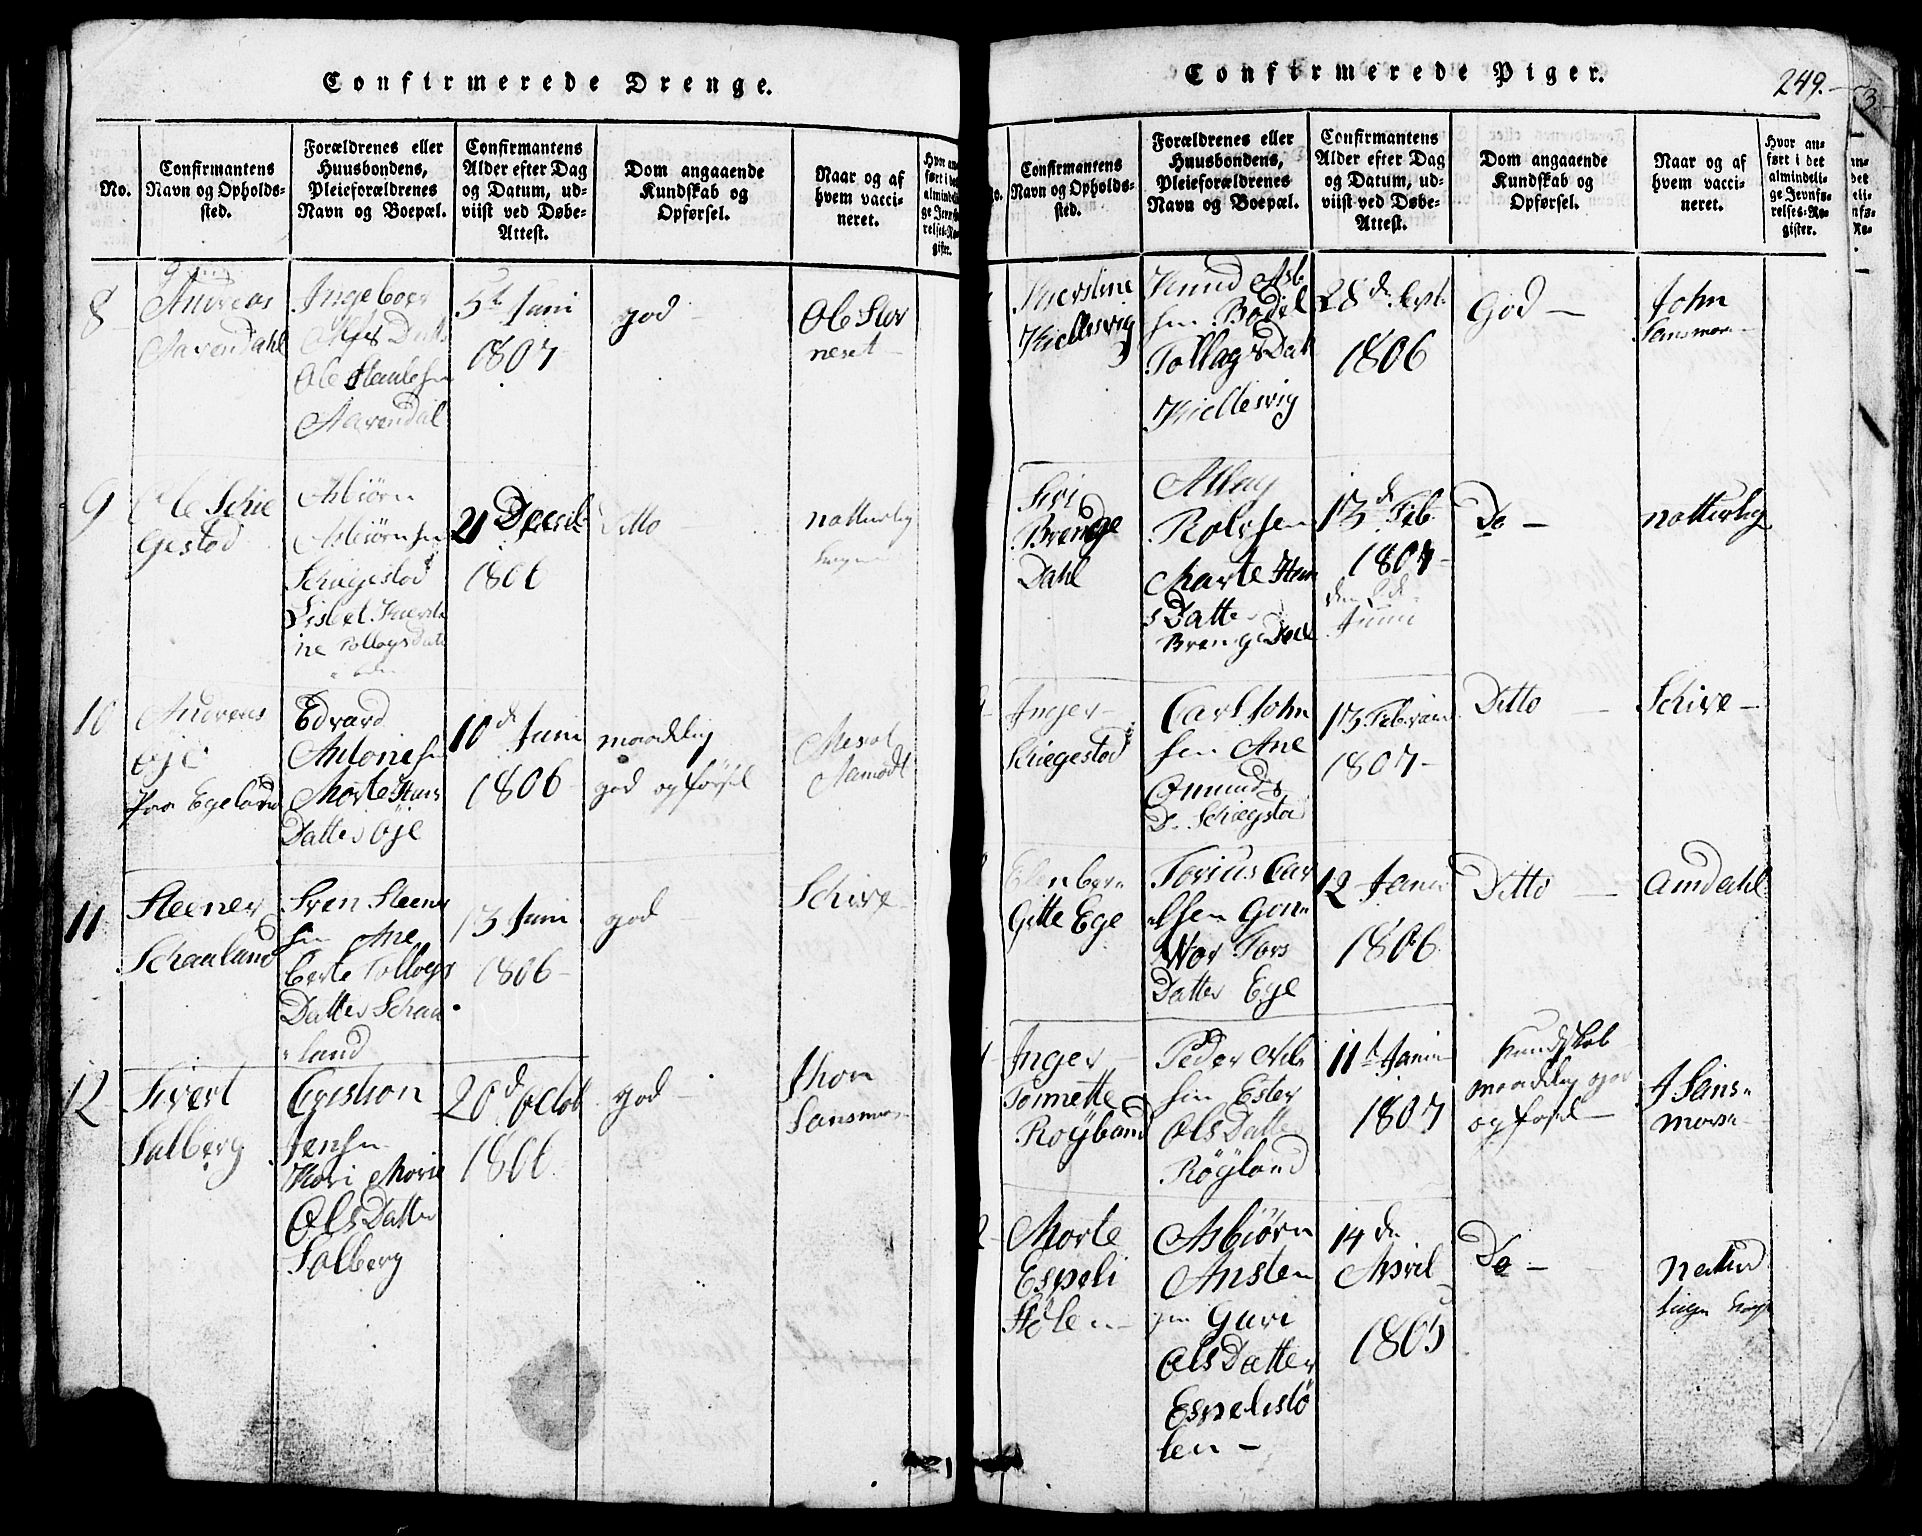 Confirmerede Drenge.
No.
Confirmantens
Navn og Opholds-
sted.
Forældrenes eller
Huusbondens,
Pleieforældrenes
Navn og Boepæl.
Confirmantens
Alder efter Dag
og Datum, ud-
viist ved Døbe-
Attest.
Dom angaaende
Kundskab og
Opførsel.
Naar og af
hvem vacci-
neret.
8
Andreas
Aavendahl
Ingeboer
Olfs Datter
Ole
Aavendal
5t Juni
1807
god
Ole Stor
neset
9
Ole Schie
Gestod
Asbiørn
Asbiørnsen
Schiegestod
Lisbet Kierst
ine Tollagsdatt
21 Deceb
1806
Ditto
natturlig
10
Andreas
Øje
paa Egeland
Edvard
Antonisen
Marte Hans
Datter Øje
10d Juni
1806
maadelig
god opførsel
Aamodt
11
Steener
Schaaland
Sven Steener
sen Ane
Berte Tollags
Datter Schaa
land
13 Juni
1806
god
Schive
12
Sivert
Salberg
Cristian
Jensen
Kari Marie
Ols Datter
Salberg
20d Octob
1806
god
Jhon
Sansmoen
Confirmerede Piger.
249.
No.
Confirmantens
Navn og Opholds-
sted.
Forældrenes eller
Huusbondens,
Pleieforældrenes
Navn og Boepæl.
Confirmantens
Alder efter Dag
og Datum, ud-
viist ved Døbe-
Attest.
Dom angaaende
Kundskab og
Opførsel.
Naar og af
hvem vacci-
neret.
Hvor an-
ført i det
almindeli-
ge Jevnfø-
relses-Re-
gister.
Kierstine
Kiellesvig
Knud Asb
sen Bodel
Tollags Dat
Kiellesvig
28d Sept
1806
God
John
Sansmoen
Siri
Brenge
Dahl
Aslag
Rolvsen
Marte Han
s Datter
Brenge Dahl
13d Feb
1807
Juni
Do
natturlig
Inger
Schiegestod
Carl John
sen Ane
Omunds
D. Schiegstad
13 Februar
1807
Ditto
Schive
Elen ber-
Gitte Ege
Torius Car
lsen Gon-
Wor Tors
Datter Ege
12 Janu
1806
Ditto
Amdahl
Inger
Tonnette
Røyland
Peder Nils
sen Ester
Ols Datter
Røyland
11t Janu
1807
Kundskab
maadelig god
opførsel
J Sans-
moen
Marte
Espeli
Stølen
Asbiørn
Ansten
sen Guri
Ols Datter
Espelistø
len
14 de
April
1805
Do